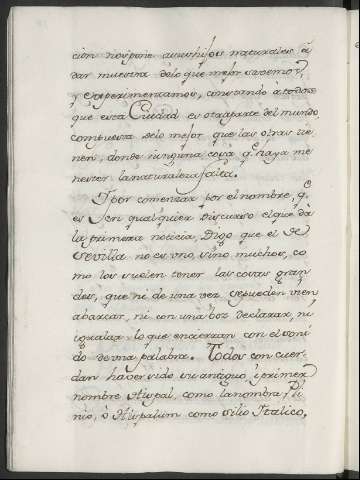 cion no pone a sus hijos naturales à
dar muestra delo que mejor savemos,
y experimentamos, constando à todos
que esta Ciudad es otra parte del mundo
compuesta delo mejor que las otras tie
nen, donde ninguna cosa q.e haya me
nester la naturaleza falta.
Y por comenzar por el nombre, q.e
es en qualquier Discurso el que dà
la primera noticia, Digo que el de
Sevilla no es uno, sino muchos, co
mo los suelen tener las cosas gran
des, que ni de una vez se pueden vien
abarcar, ni con una voz declarar, ni
igualar lo que encierran con el soni
do de una palabra. Todos con cuer-
dan haver sido su antiguo i primer
nombre Hispal, como la nombra Pli
nio, ò Hispalum como Silio Italico,